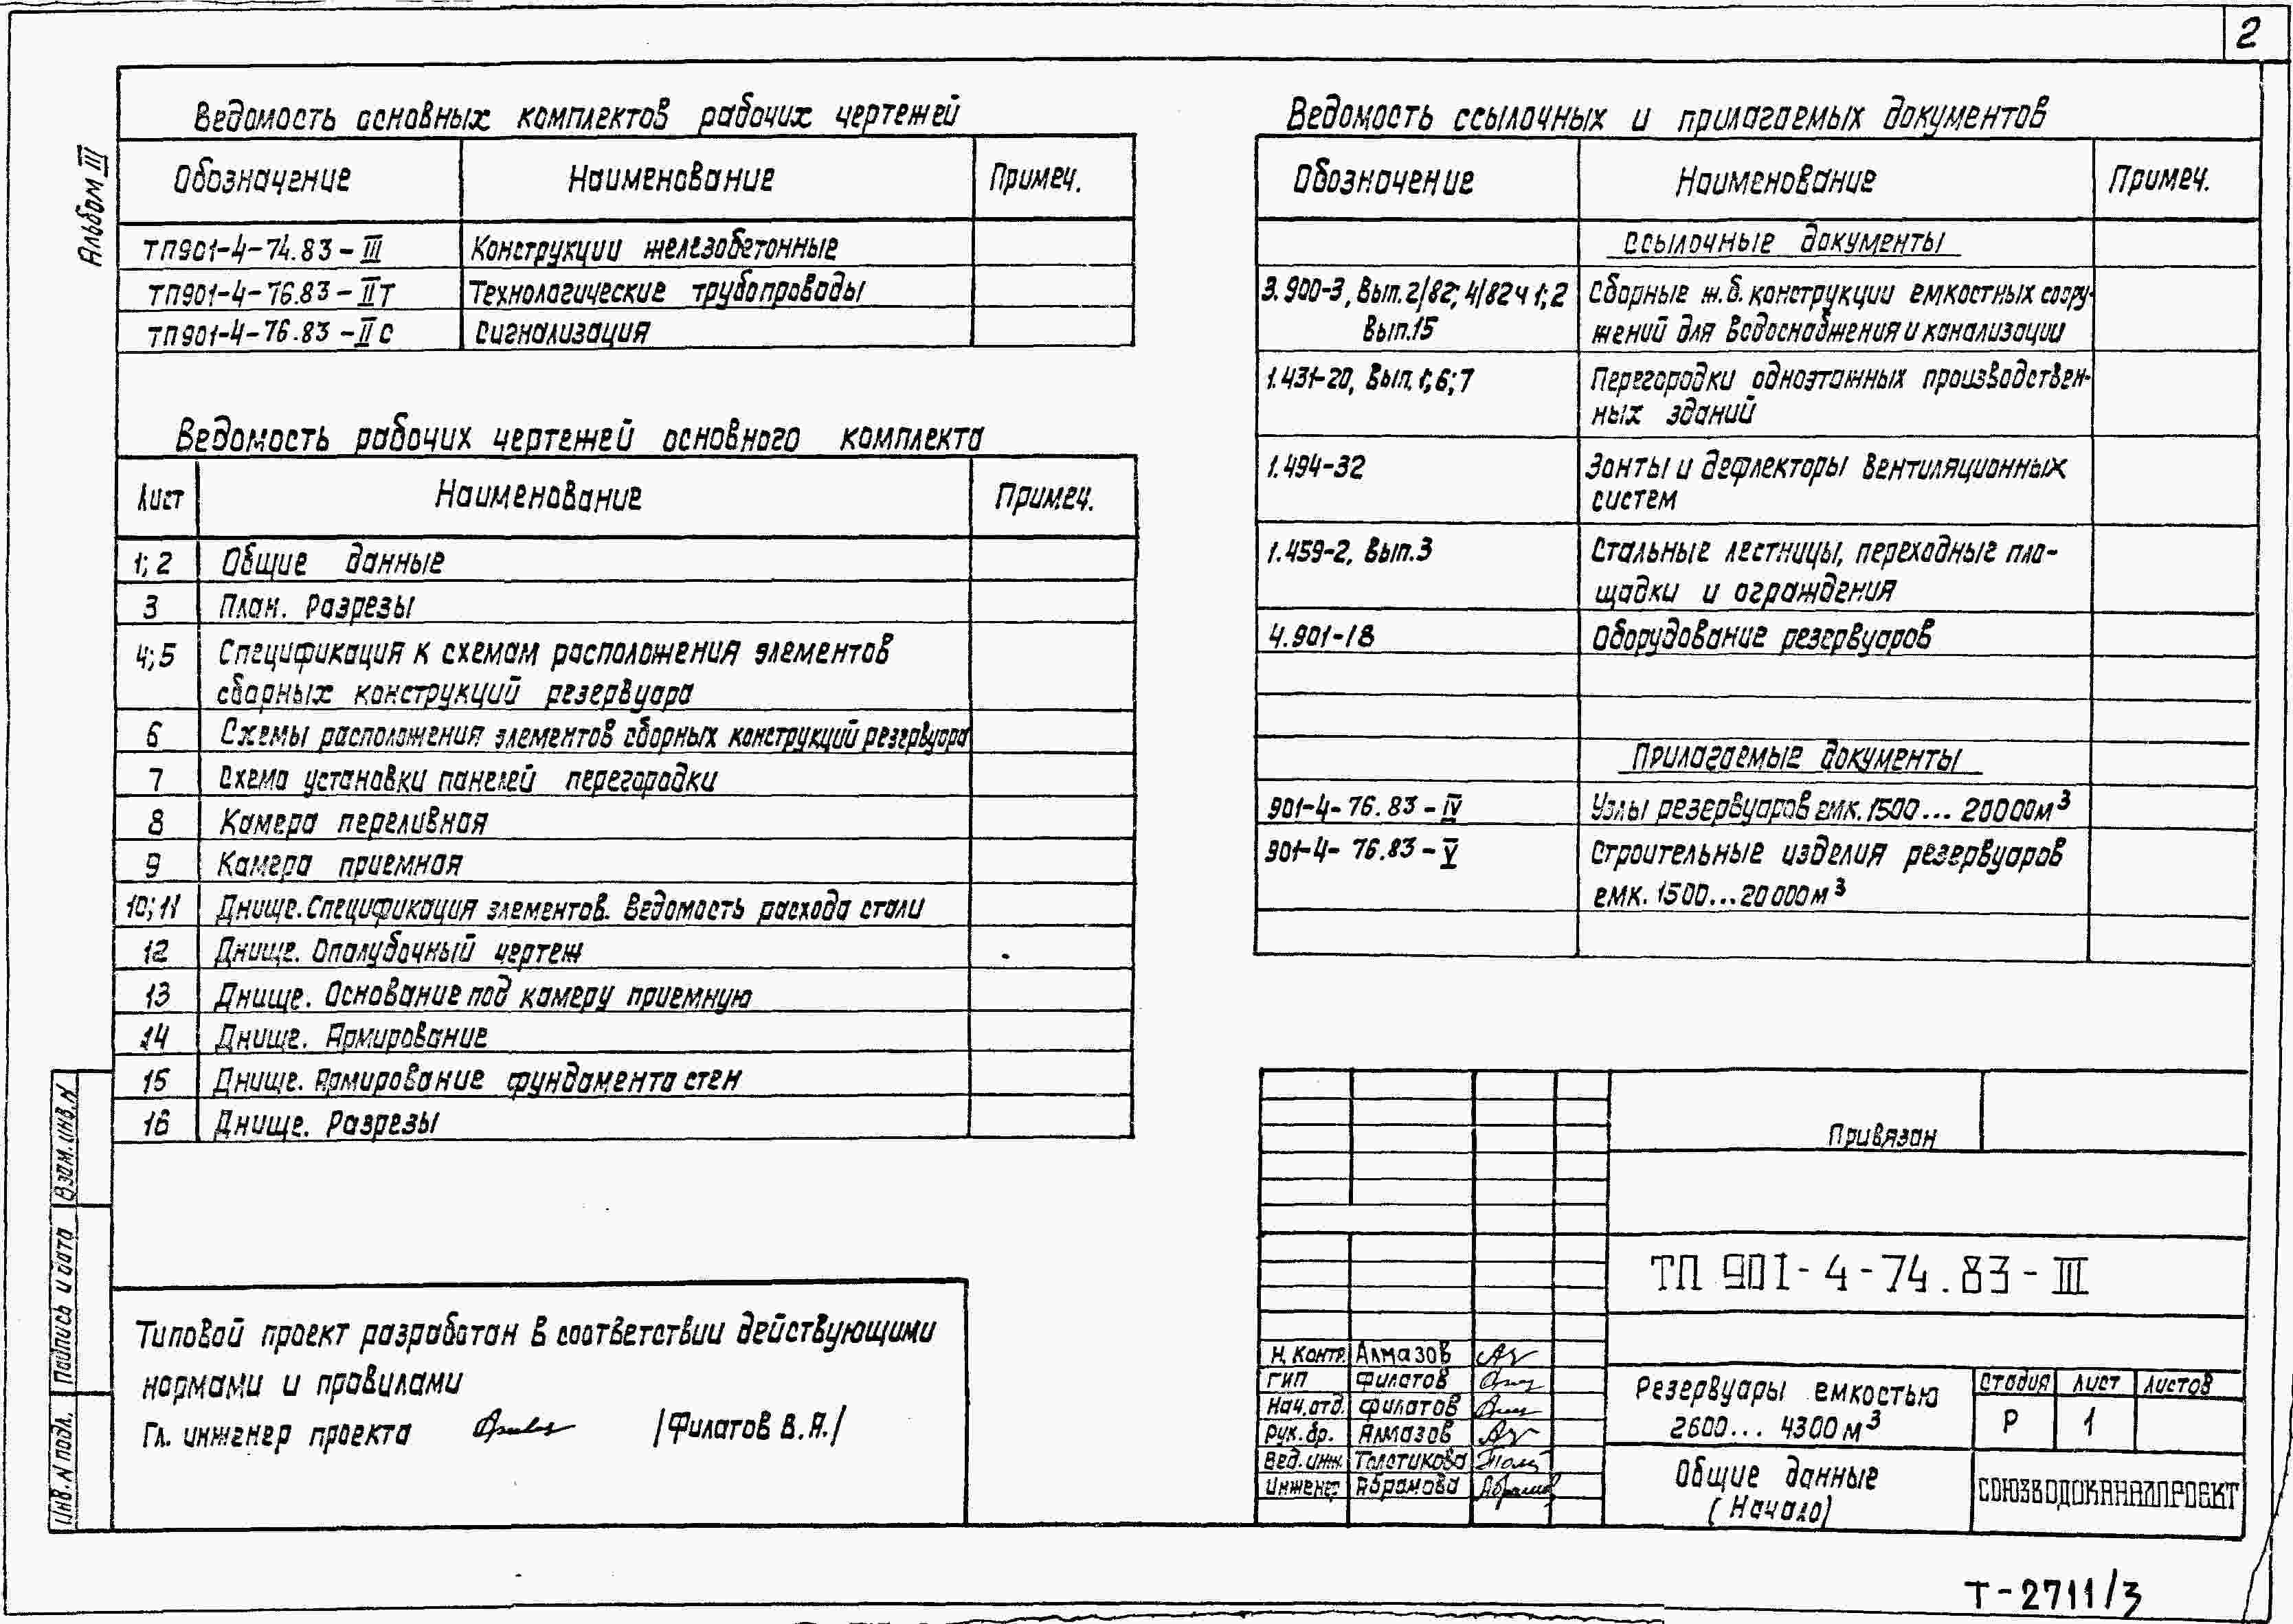 2
Альбом III
Ведомость основных комплектов рабочих чертежей
Обозначение Наименование Примеч.
ТП901-4-74.83-III Конструкции железобетонные
ТП901-4-76.83-IIТ Технологические трубопроводы
ТП901-4-76.83-IIС Сигнализация
Ведомость рабочих чертежей основного комплекта
Лист Наименование Примеч.
1; 2 Общие данные
3 План. Разрезы
4;5 Спецификация к схемам расположения элементов
сборных конструкций резервуара
6 Схемы расположения элементов сборных конструкций резервуара
7 Схема установки панелей перегородки
8 Камера переливная
9 Камера приемная
10;11 Днище. Спецификация элементов. Ведомость расхода стали
12 Днище. Опалубочный чертеж
13 Днище. Основание под камеру приемную
14 Днище. Армирование
15 Днище. Армирование фундамента стен
16 Днище. Разрезы
Типовой проект разработан в соответствии действующими
нормами и правилами
Гл. инженер проекта /Филатов В.А./
Взам. инв. N
Подпись и дата
Инв. N подл.
Ведомость ссылочных и прилагаемых документов
Обозначение Наименование Примеч.
Ссылочные документы
3.900-3, Вып. 2/82; 4/82 ч 1; 2 Сборные ж.б. конструкции емкостных соору-
Вып. 15 жений для водоснабжения и канализации
1.431-20, Вып. 1; 6; 7 Перегородки одноэтажных производствен-
ных зданий
1.494-32 Зонты и дефлекторы вентиляционных
систем
1.459-2, Вып. 3 Стальные лестницы, переходные пло-
щадки и ограждения
4.901-18 Оборудование резервуаров
Прилагаемые документы
901-4-76.83-IV Узлы резервуаров емк. 1500... 20000м³
901-4-76.83-V Строительные изделия резервуаров
емк. 1500...20000м³
Привязан
ТП 901-4-74.83-III
Н. контр. Алмазов
ГИП Филатов
Нач. отд. Филатов
Рук. бр. Алмазов
Вед. инж. Толстикова
Инженер Абрамова
Резервуары емкостью
2600... 4300 м³
Стадия Лист Листов
Р 1
Общие данные
(Начало)
СОЮЗВОДОКАНАЛПРОЕКТ
Т-2711/3